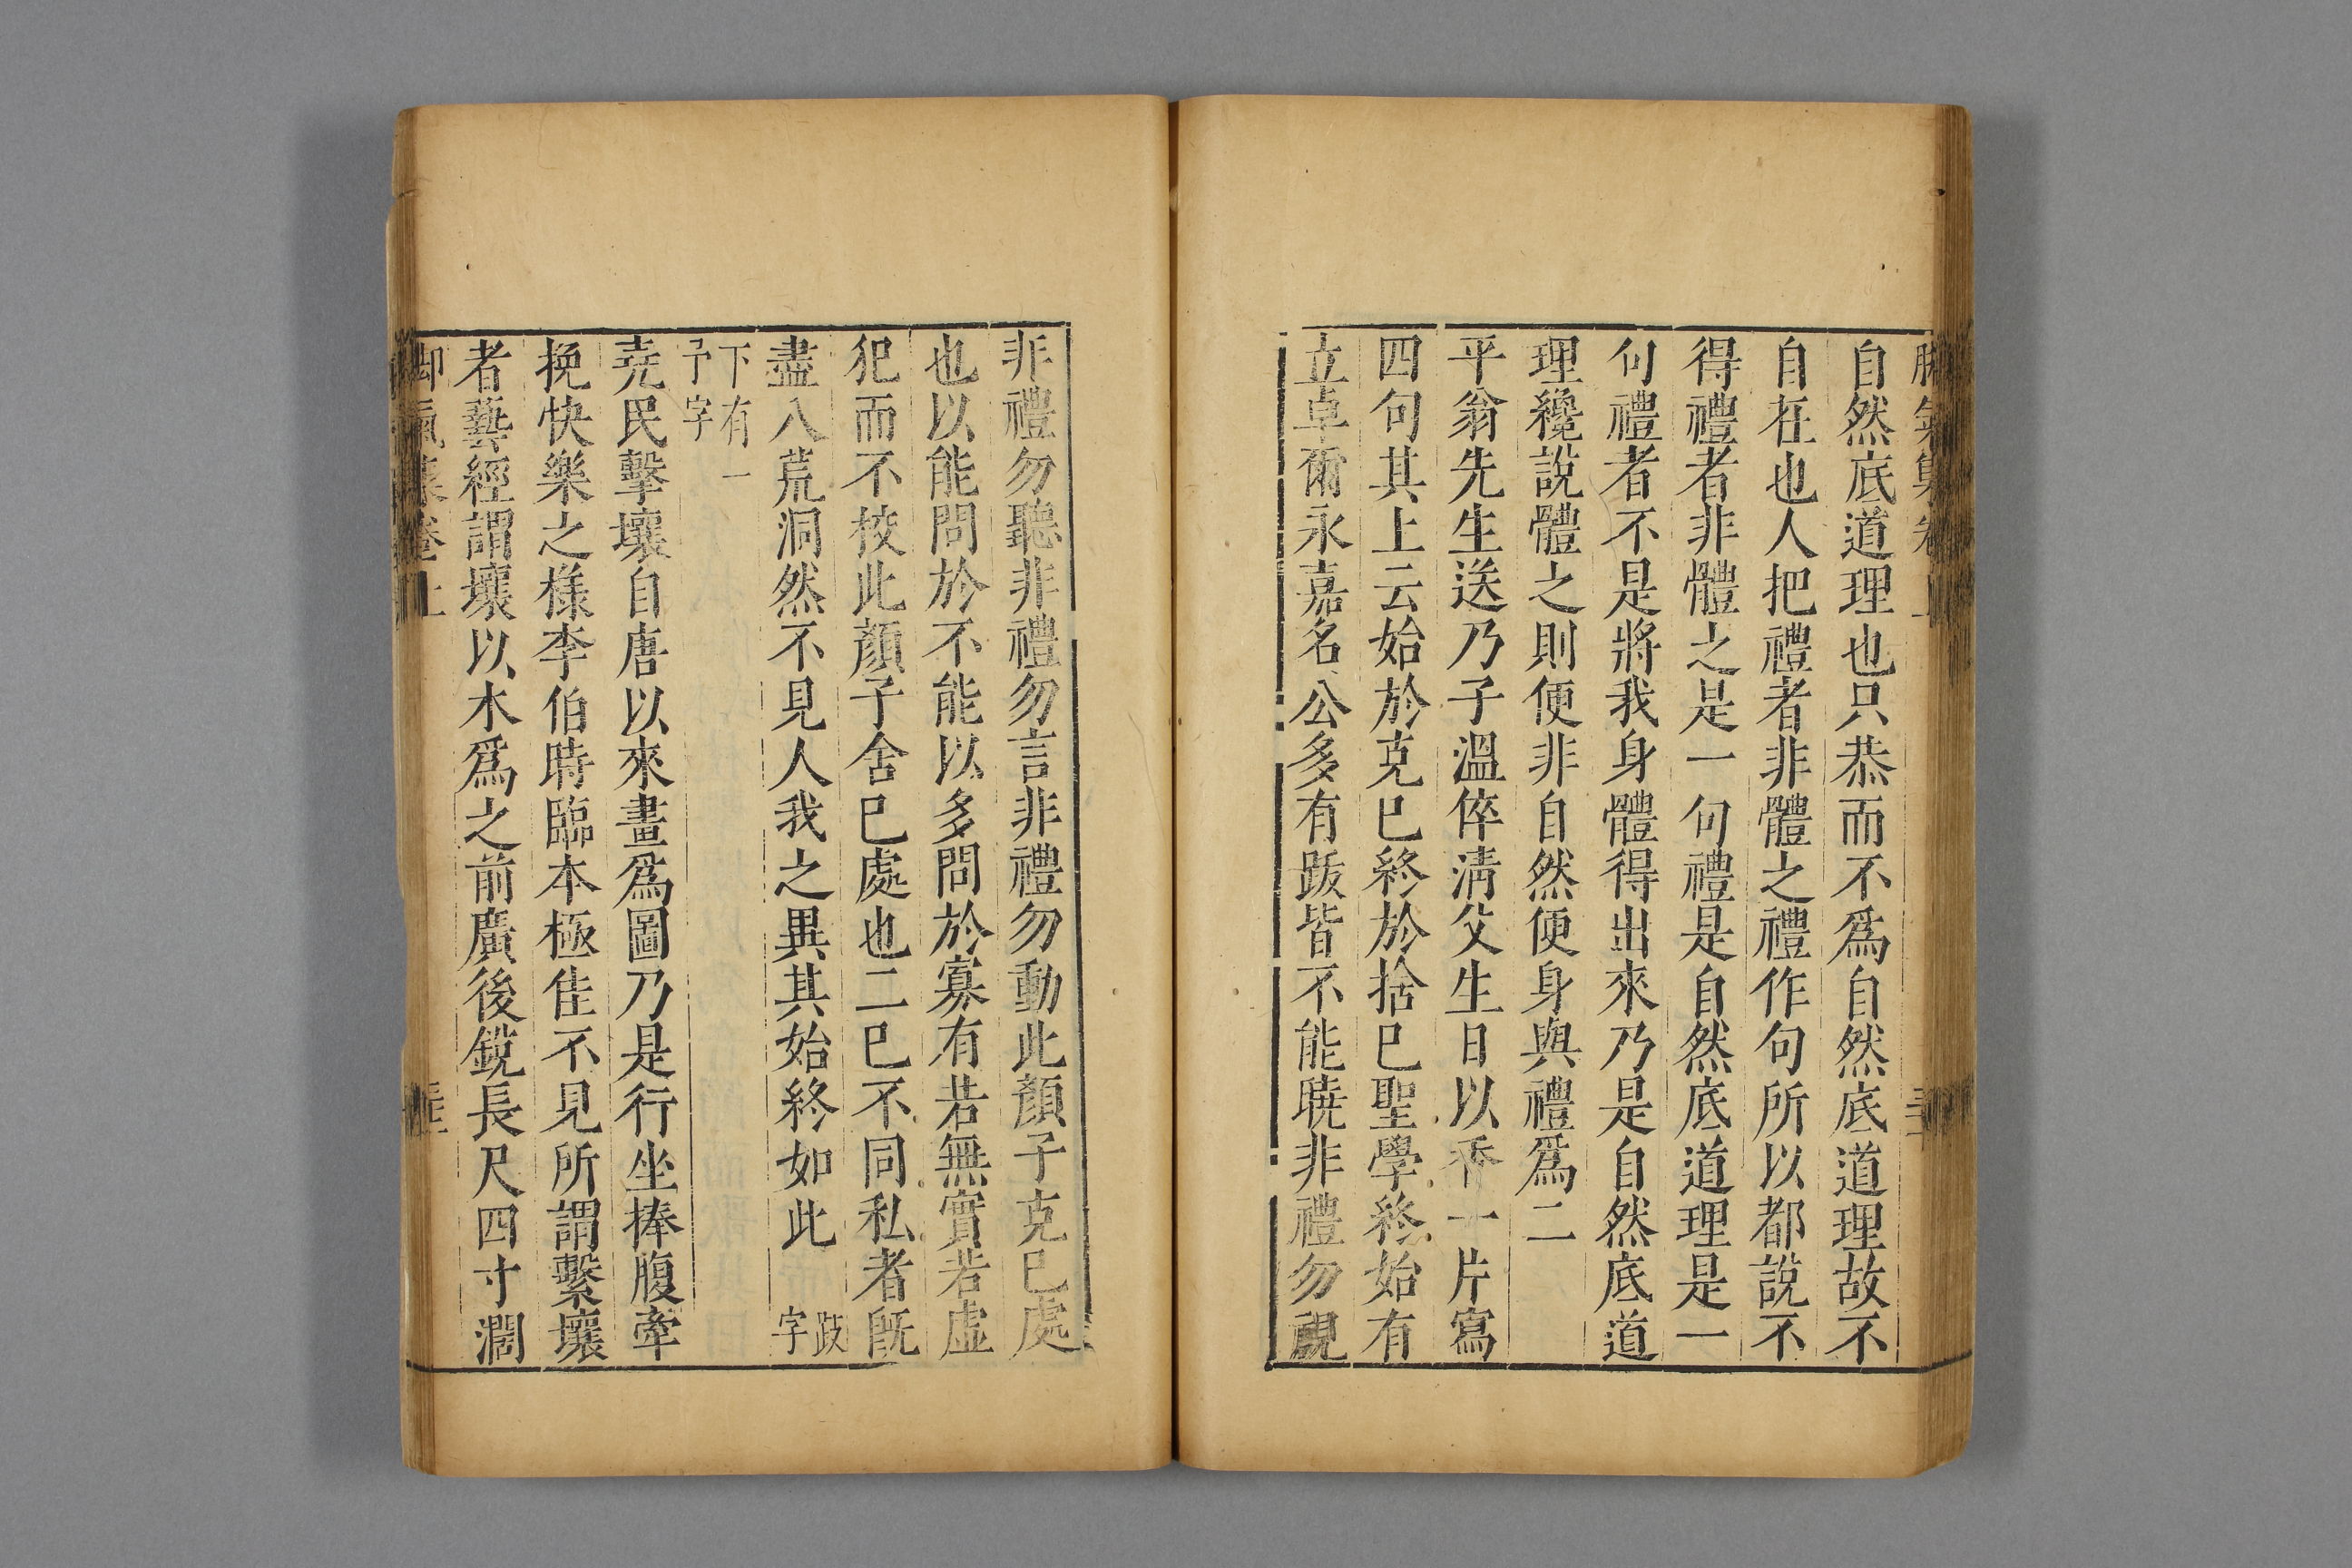 自然底道理也只恭而不爲自然底道理故不
自在也人把禮者非體之禮作句所以都說不
得禮者非體之是一句禮是自然底道理是一
句禮者不是將我身體得出來乃是自然底道
理纔說體之則便非自然便身與禮爲二
平翁先生送乃子溫倅淸父生日以香一片寫
四句其上云始於克已終於捨已聖學終始有
立卓爾永嘉名公多有跋皆不能曉非禮勿視
非禮勿聽非禮勿言非禮勿動此顏子克已處
也以能問於不能以多問於寡有若無實若虛
犯而不校此顏子舍已處也二已不同私者旣
盡八荒洞然不見人我之異其始終如此 跋字
下有一
予字
堯民擊壤自唐以來畫爲圖乃是行坐捧腹牽
挽快樂之樣李伯時臨本極佳不見所謂繫壤
者藝經謂壤以木爲之前廣後銳長尺四寸濶
脚氣集卷上